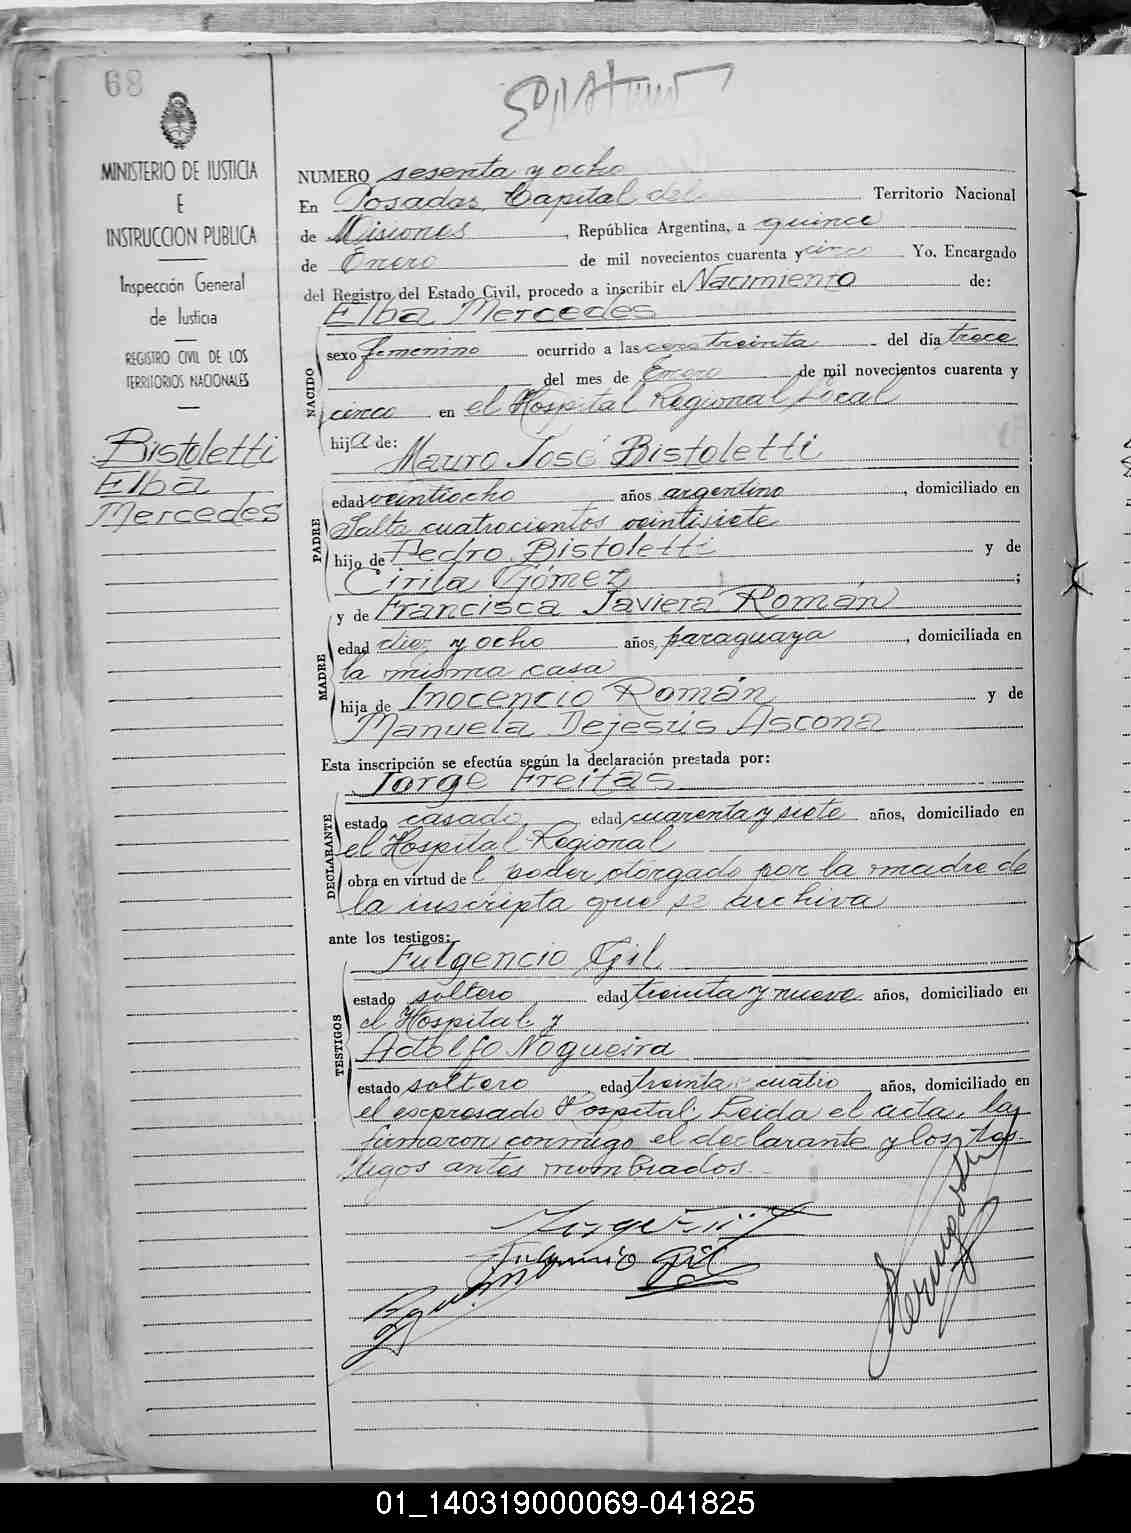 68
MINISTERIO DE JUSTICIA
E
INSTRUCCION PUBLICA
Inspección General
de Justicia
REGISTRO CIVIL DE LOS
TERRITORIOS NACIONALES
Bistoletti
Elba
Mercedes
NUMERO sesenta y ocho
En Posadas, Capital del Territorio Nacional
de Misiones, República Argentina, a quince
de Enero de mil novecientos cuarenta y cinco Yo, Encargado
del Registro del Estado Civil, procedo a inscribir el Nacimiento de:
Elba Mercedes
NACIDO
sexo femenino ocurrido a las cero treinta del día trece
del mes de Enero de mil novecientos cuarenta y
cinco en el Hospital Regional Local
hija de:
Mauro José Bistoletti
PADRE
edad veintiocho años argentino, domiciliado en
Salta cuatrocientos veintisiete
hijo de Pedro Bistoletti y de
Cirila Gómez;
y de Francisca Javiera Román
MADRE
edad diez y ocho años, paraguaya, domiciliada en
la misma casa
hija de Inocencio Román y de
Manuela Dejesús Ascona
Esta inscripción se efectúa según la declaración prestada por:
Jorge Freitas
DECLARANTE
estado casado edad cuarenta y siete años, domiciliado en
el Hospital Regional
obra en virtud del poder otorgado por la madre de
la inscripta que se archiva
ante los testigos:
Fulgencio Gil
TESTIGOS
estado soltero edad treinta y nueve años, domiciliado en
el Hospital y
Adolfo Nogueira
estado soltero edad treinta cuatro años, domiciliado en
el expresado Hospital; Leida el acta, la
firmaron conmigo el declarante y los tes-
tigos antes nombrados.-
Fulgencio Gil
01_140319000069-041825